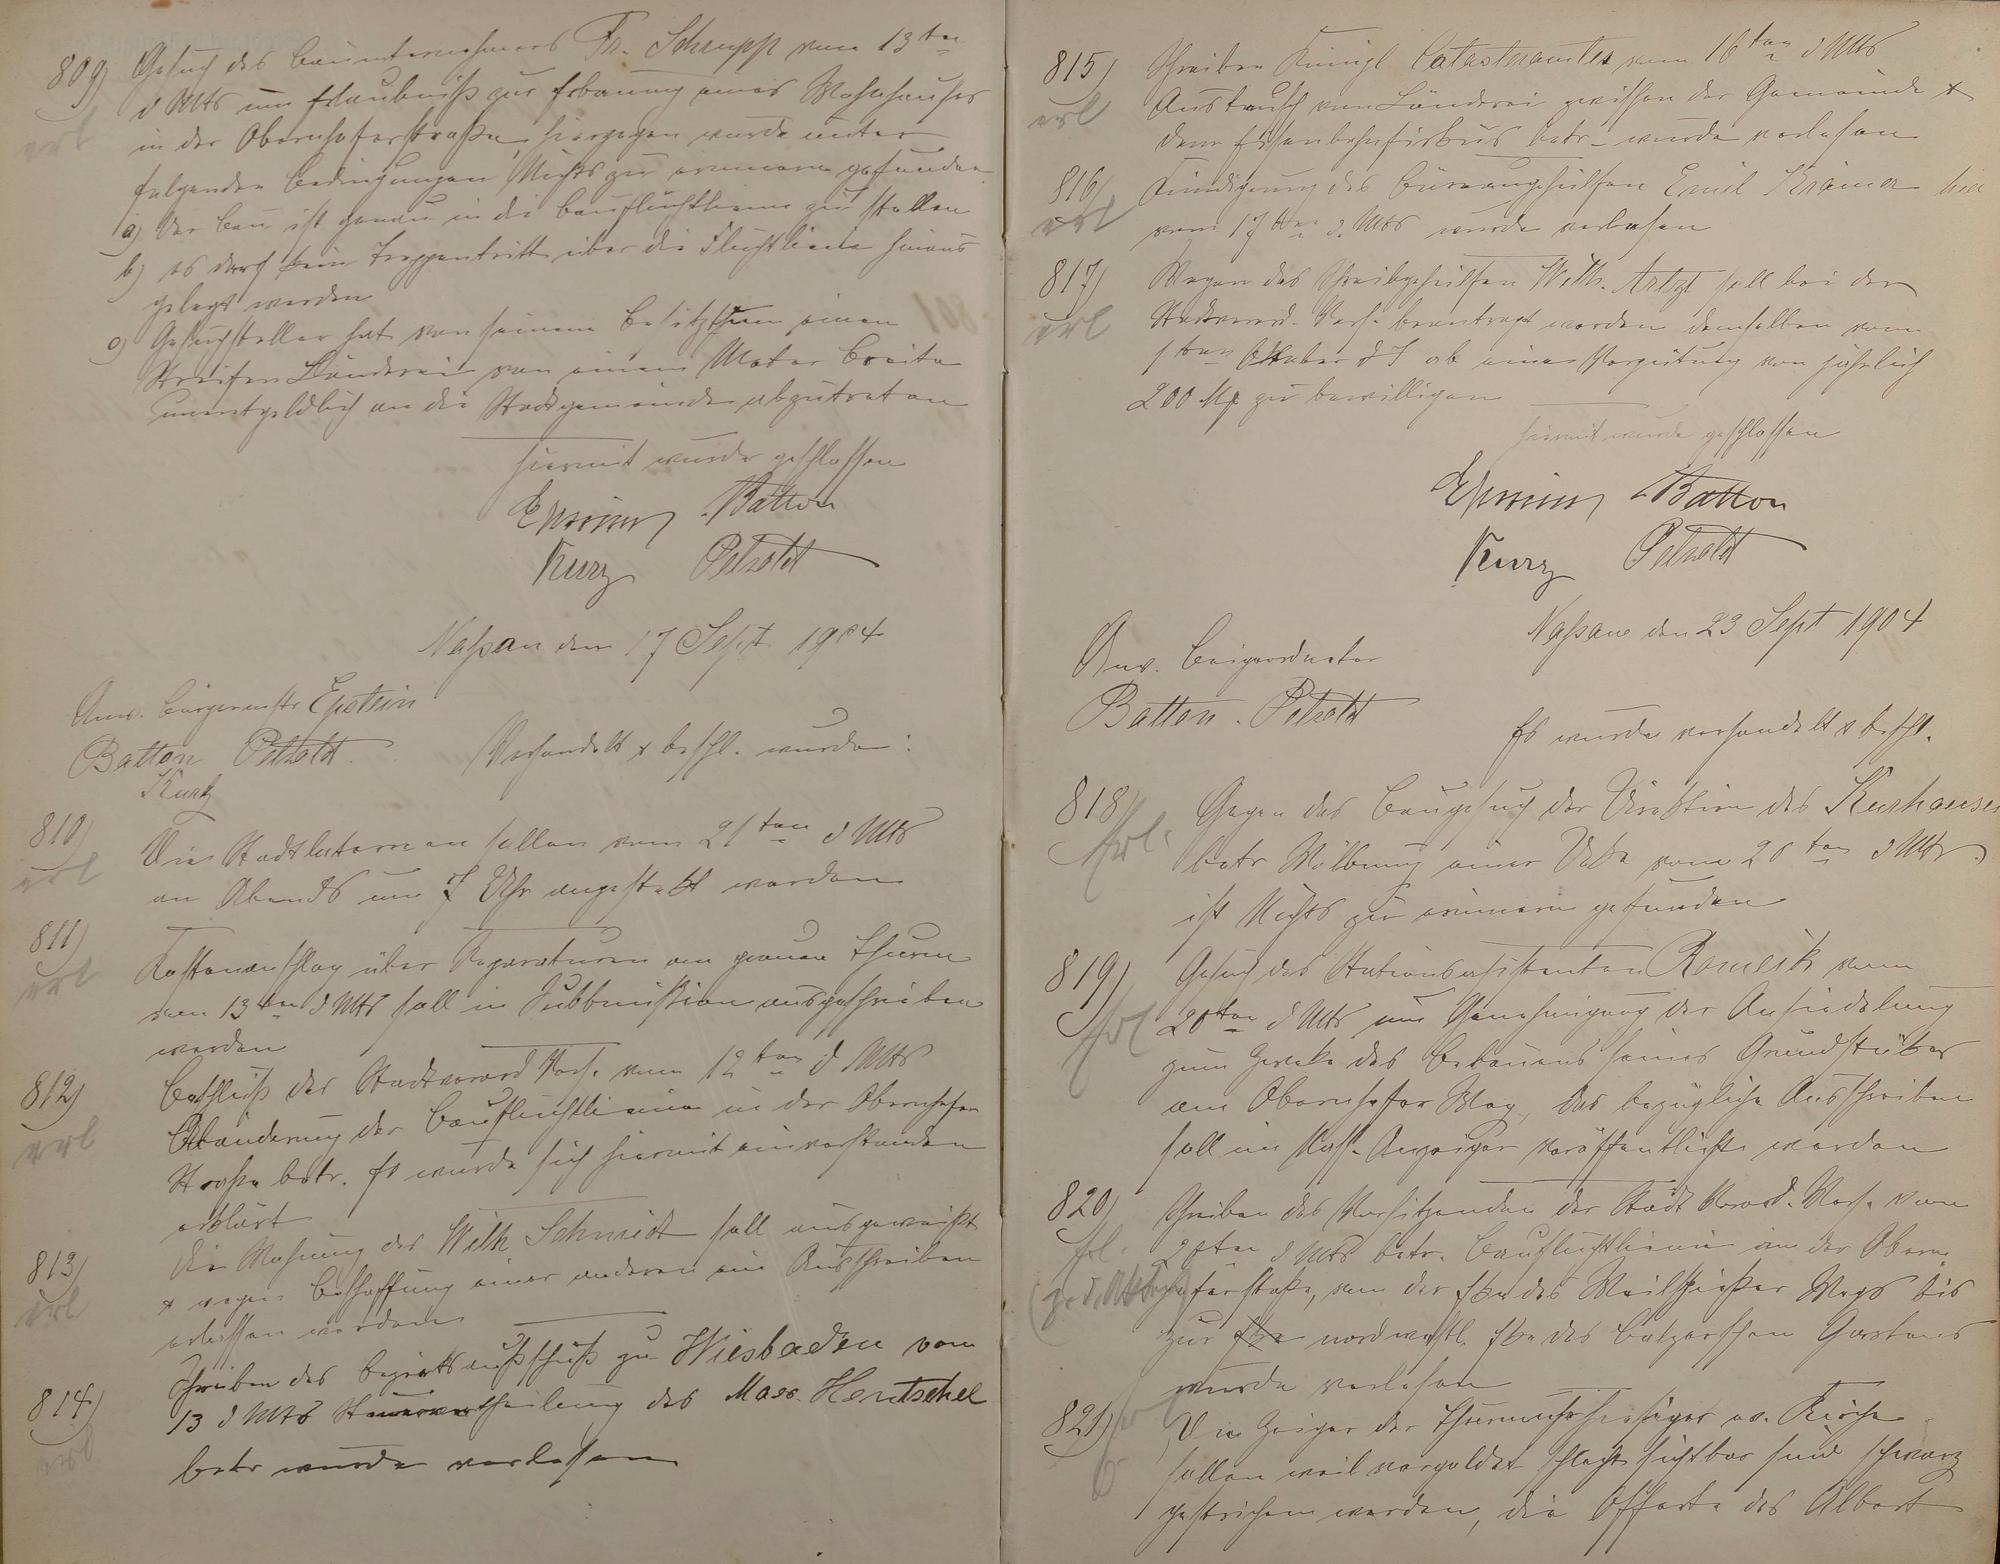 809) Gesuch des Bauunternehmers Fr. Schrupp vom 13ten
erl
d Mts um Erlaubniß zur Erbauung eines Wohnhauses
in der Obernhoferstraße, hiergegen wurde unter
folgenden Bedingungen Nichts zu erinnern gefunden
a) Der Bau ist genau in die Baufluchtlinie zu stellen
b) es darf kein Treppentritt über die Fluchtlinie hinaus
gelegt werden
c) Gesuchsteller hat von seinem Besitzthum einen
Streifen Länderei von einem Meter Breite
unentgeldlich an die Stadtgemeinde abzutreten
Hiermit wurde geschlossen
Batton
Kurz Petzoldt
Naßau den 17 Sept 1904
Anw. Bürgermstr Epstein
Batton Petzoldt. Verhandelt & beschl. wurde:
Kurtz
810) Die Stadtlaternen sollen vom 21ten d Mts
erl
an Abends um 7 Uhr angesteckt werden
811) Kostenanschlag über Reparaturen am grauen Thurm
erl
vom 13ten d Mts soll in Submission ausgeschrieben
werden
812) Beschluß der Stadtverord Vers. vom 12ten d Mts
erl
Abänderung der Baufluchtlinie in der Obernhofer
Straße betr. Es wurde sich hiermit einverstanden
erklärt
813) Die Wohnung des Wilh Schmidt soll ausgeweißt
erl
& wegen Beschaffung einer anderen ein Ausschreiben
erlassen werden
814) Schreiben des Bezirksausschuß zu Wiesbaden vom
erl
13 d Mts Steuervertheilung des Mass. Hentschel
betr wurde verlesen
815) Schreiben Königl Catasteramtes vom 16ten d Mts
erl
Austausch von Länderei zwischen der Gemeinde &
dem Eisenbahnfiskus betr. wurde verlesen
816) Kündigung des Bureaugehülfen Emil Krämer hier
erl
vom 17ten d. Mts wurde verlesen
817) Wegen des Schreibgehülfen Wilh. Artzt soll bei der
erl
Stadtverord. Vers. beantragt werden demselben vom
1ten Oktober d J ab eine Vergütung von jährlich
200 Mk zu bewilligen
Hiermit wurde geschlossen
Batton
Kurz Petzoldt
Naßau den 23 Sept 1904
Anw. Beigeordneter
Batton. Petzoldt
Es wurde verhandelt & beschl.
818) Gegen das Baugesuch der Direktion des Kurhauses
Erl.
betr Wölbung einer Decke vom 20ten d Mts
ist Nichts zu erinnern gefunden
819) Gesuch des Stationsassistenten vom
Erl
20ten d Mts um Genehmigung der Ansiedelung
zum Zwecke des Bebauens seines Grundstückes
am Obernhofer Weg, das bezügliche Ausschreiben
soll im Nass. Anzeiger veröffentlicht werden
820) Schreiben des Vorsitzenden der Stadt Verord. Vers. vom
Erl.
20ten d Mts betr. Baufluchtlinie in der Obern-
hoferstraße, von der Ecke des Wegs bis
zur Ecke nordwestl. Ecke des Balzer'schen Gartens
wurde verlesen
821) Die Zeiger der Thurmuhr hiesiger ev. Kirche
sollen weil vergoldet schlecht sichtbar sind schwarz
gestrichen werden, die Offerte des Albert